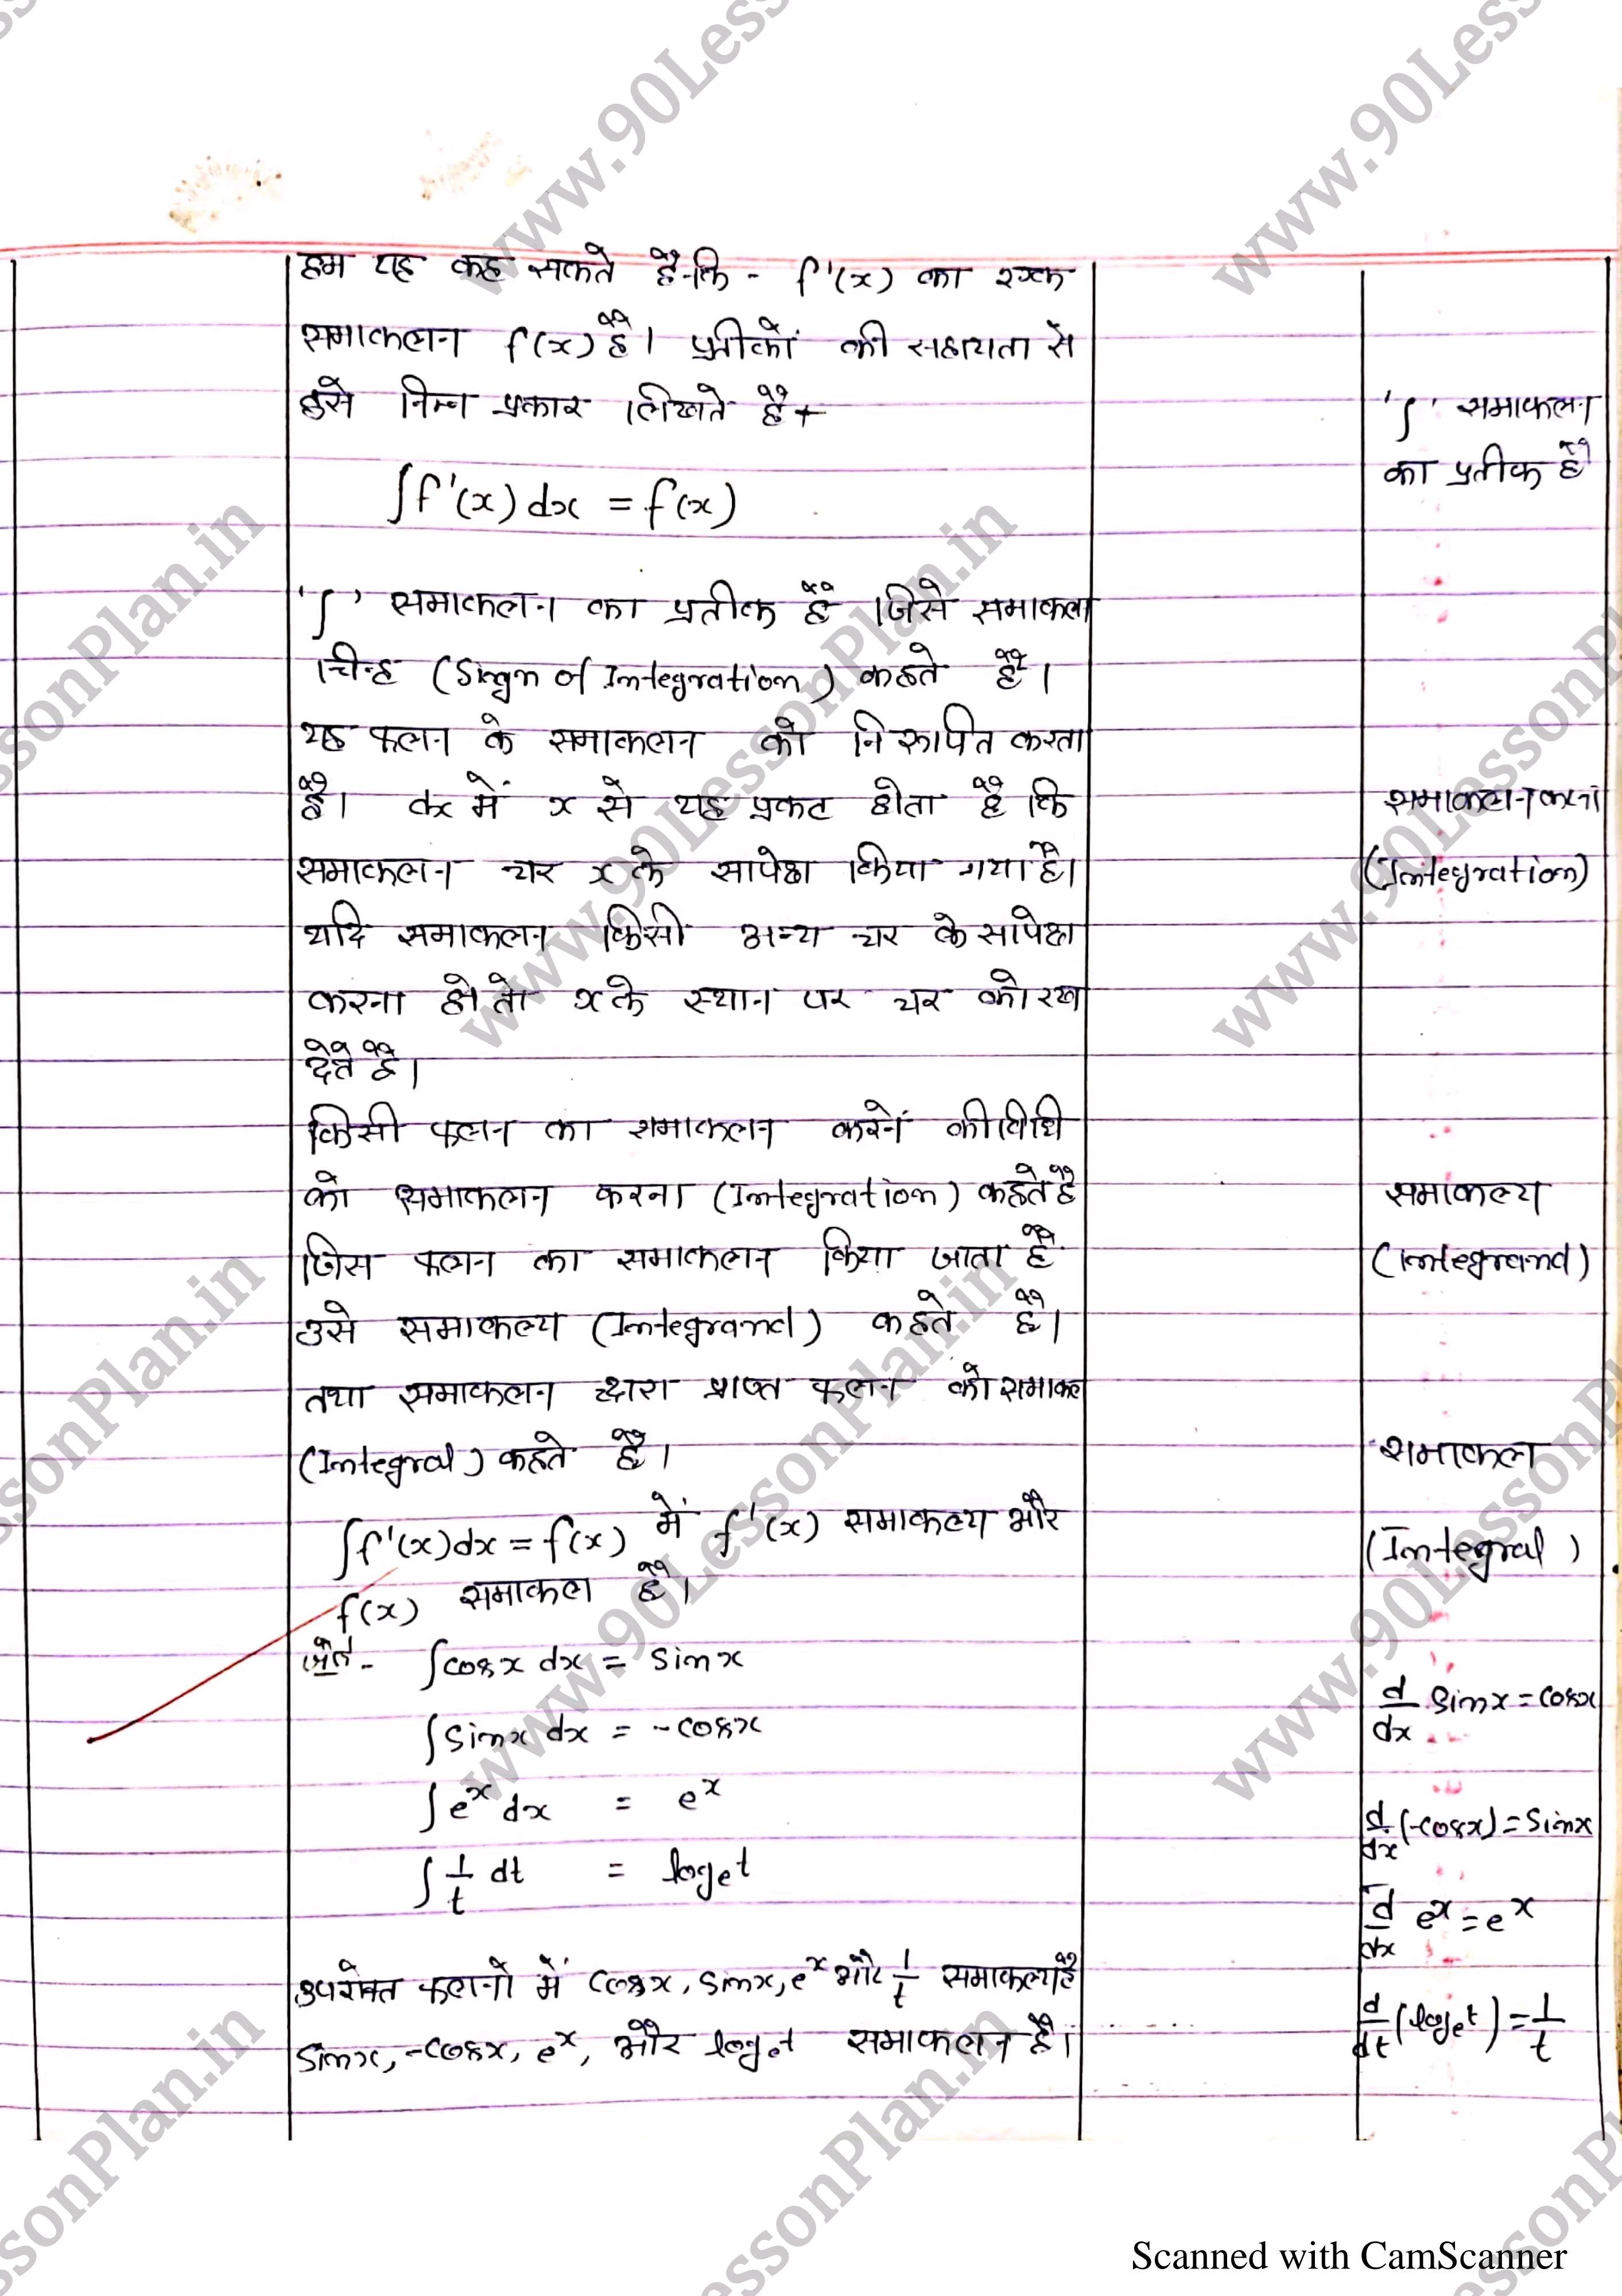 हम यह कह सकते हैं कि - f'(x) का एक
समाकलन f(x) है। प्रतीकों की सहायता से
इसे निम्न प्रकार लिखते हैं -
∫f'(x) dx = f(x)
'∫' समाकलन का प्रतीक है जिसे समाकल
चिन्ह (Sign of Integration) कहते हैं।
यह फलन के समाकलन को निरूपित करता
है। dx में x से यह प्रकट होता है कि
समाकलन चर x के सापेक्ष किया गया है।
यदि समाकलन किसी अन्य चर के सापेक्ष
करना हो तो x के स्थान पर चर को रख
देते है।
किसी फलन का समाकलन करनें की विधि
को समाकलन करना (Integration) कहते है
जिस फलन का समाकलन किया जाता है
उसे समाकल्य (Integrand) कहते है।
तथा समाकलन द्वारा प्राप्त फलन को समाकल
(Integral) कहते है।
∫f'(x)dx = f(x) में f'(x) समाकल्य और
f(x) समाकल है।
जैसे- ∫cosx dx = sinx
∫sinx dx = -cosx
∫e^x dx = e^x
∫1/t dt = log_e t
उपरोक्त फलनो में cosx, sinx, e^x और 1/t समाकल्य है
sinx, -cosx, e^x, और log_e t समाकलन है।
'∫' समाकलन
का प्रतीक है
समाकलन करना
(Integration)
समाकल्य
(Integrand)
समाकल
(Integral)
d/dx sinx = cosx
d/dx (-cosx) = sinx
d/dx e^x = e^x
d/dt (log_e t) = 1/t
www.90LessonPlan.in
Scanned with CamScanner